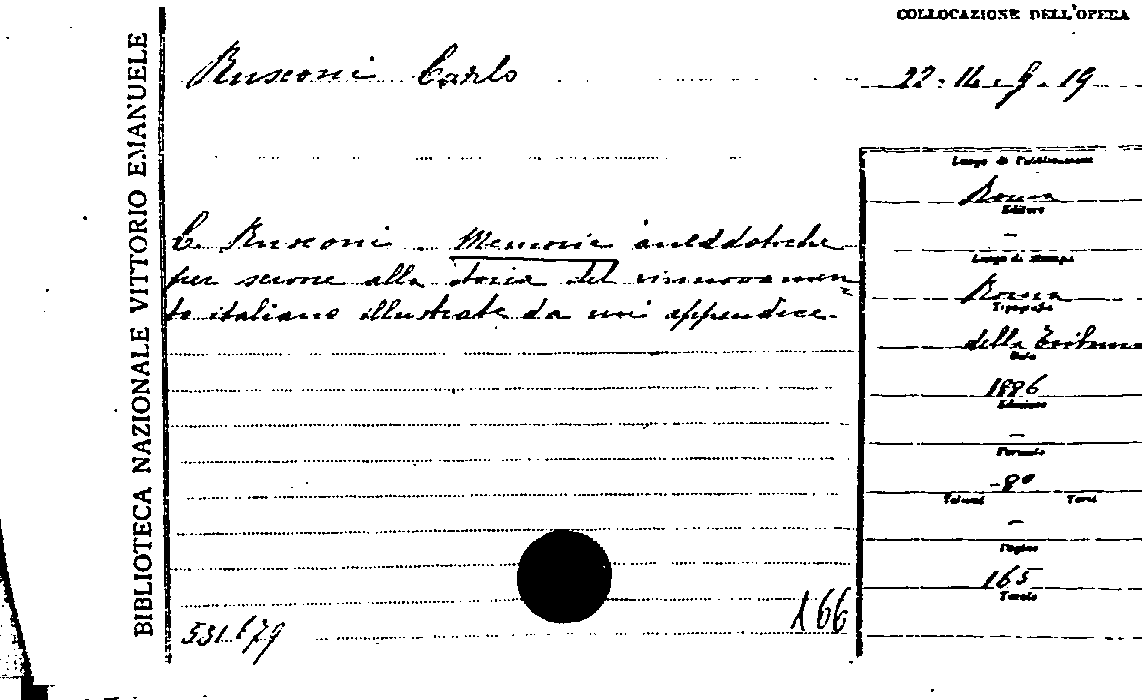 COLLOCAZIONE DELL'OPERA
BIBLIOTECA NAZIONALE VITTORIO EMANUELE
Rusconi Carlo
22.14.G.19
Luogo di Pubblicazione
Roma
Editore
–
C. Rusconi. Memorie aneddotiche
per servire alla storia del rinnovamen
to italiano illustrate da un' appendice.
Luogo di stampa
Roma
Tipografia
della Tribuna
Data
1886
Edizione
–
Formato
-8°
Volumi Tomi
–
Pagine
165
Tavole
166